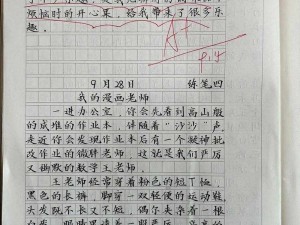 烦恼时的开心果，给我带来了很多乐
趣。
A+
9.14
9月28日 练笔四
我的漫画老师
一进办公室，你会先看到高山般
的成堆的作业本，伴随着“沙沙”声，
走近你会发现作业本后有一个凝神批
改作业的微胖老师，这就是我们严厉
又幽默的数学王老师。
王老师经常穿着粉色的短T恤，
黑色的长裤，脚穿一双轻便的运动鞋，
头发既不长又不短，偶尔夹着一根